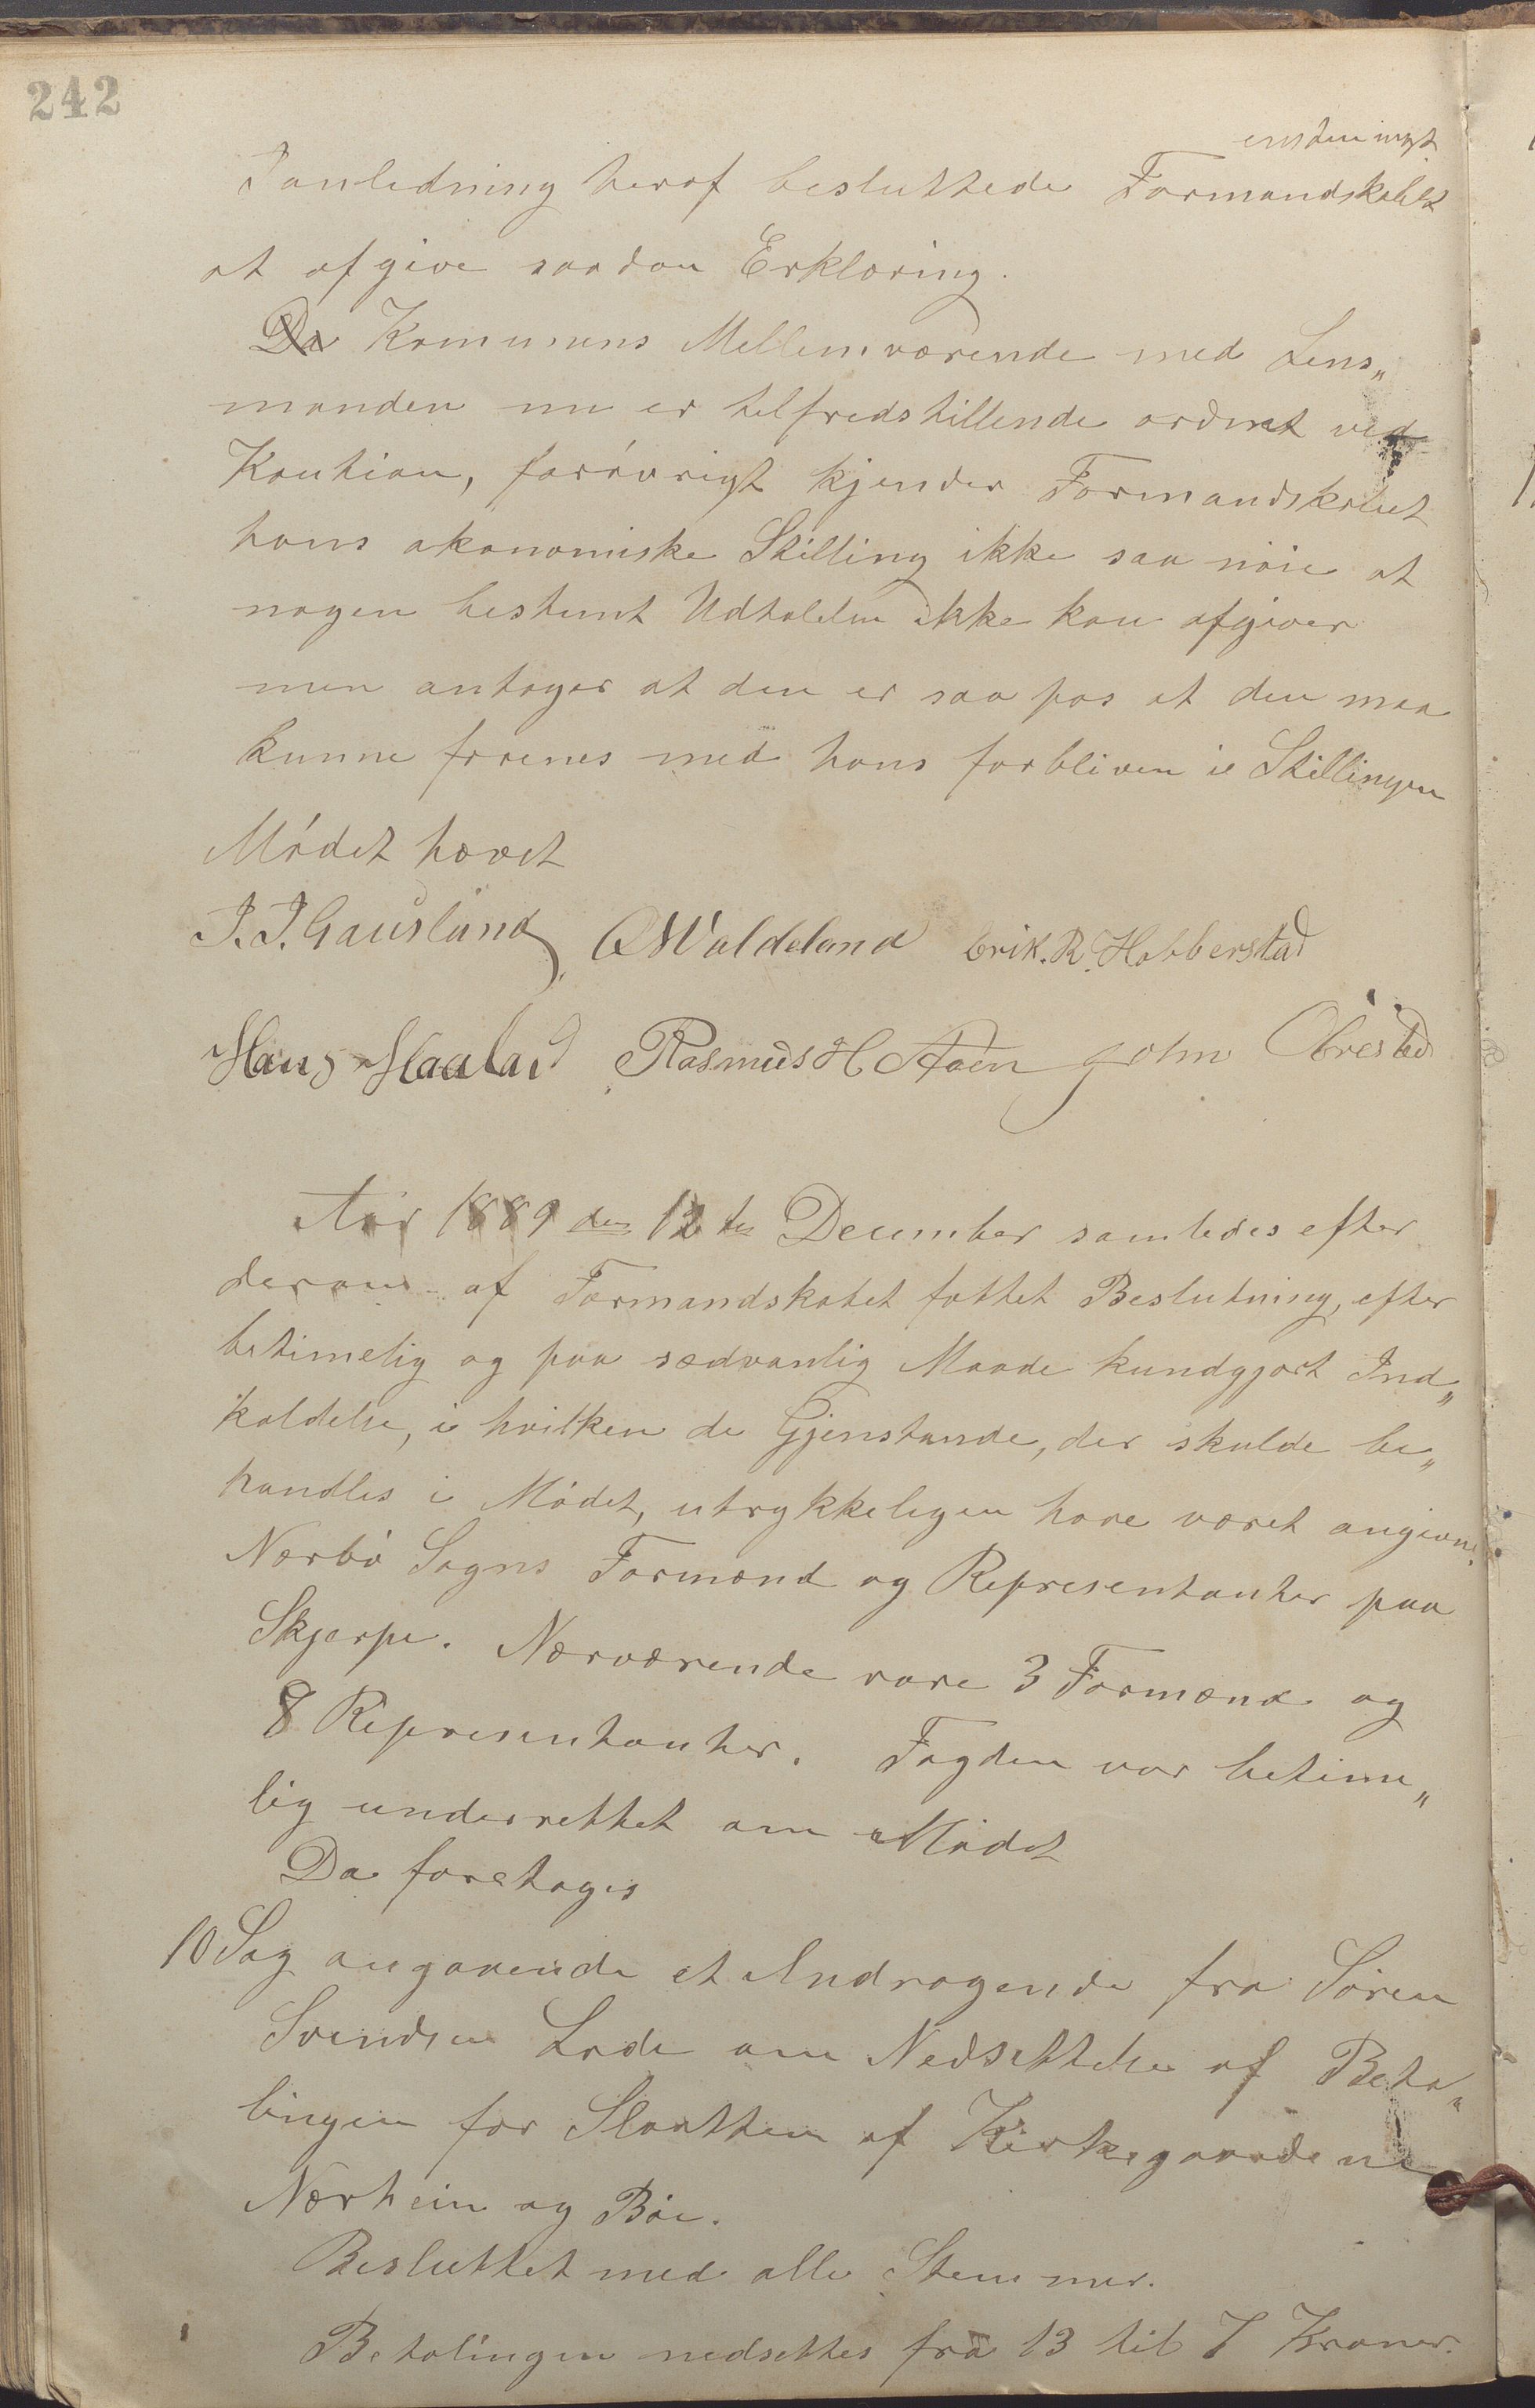 242
enstemigt
I anledning heraf besluttede Formandskabet
at afgive saadan Erklæring.
Da Komunens Mellemværende med Lens„
manden nu er tilfredstillende ordnet ved
Kaution, forøvrigt kjender Formandskabet
hans økonomiske Stilling ikke saa nøie at
nogen bestemt Udtalelse ikke kan afgives
men antager at den er saa pas at den maa
kunne forenes med hans forbliven i Stillingen
Mødet hævet
J. J. Gausland, O Waldeland Erik. R. Hobberstad
Hans Haaland Rasmus H John Obrestad
Aar 1889 den 12te December samledes efter
derom af Formandskabet fattet Beslutning, efter
betimelig og paa sædvanlig Maade kundgjort Ind„
kaldelse, i hvilken de Gjenstande, der skulde be„
handles i Mødet, utrykkeligen have været angivne,
Nærbø Sogns Formænd og Representanter paa
Skjerpe. Nærværende vare 3 Formænd og
8 Representanter. Fogden var betime„
lig underrettet om Mødet
Da foretages
10 Sag angaaende et Andragende fra Søren
Svendsen Lode om Nedsettelse af Beta„
lingen for Slaatten af Kirkegaardene
Nærheim og Bøe.
Besluttet med alle Stemmer.
Betalingen nedsettes fra 13 til 7 Kroner.